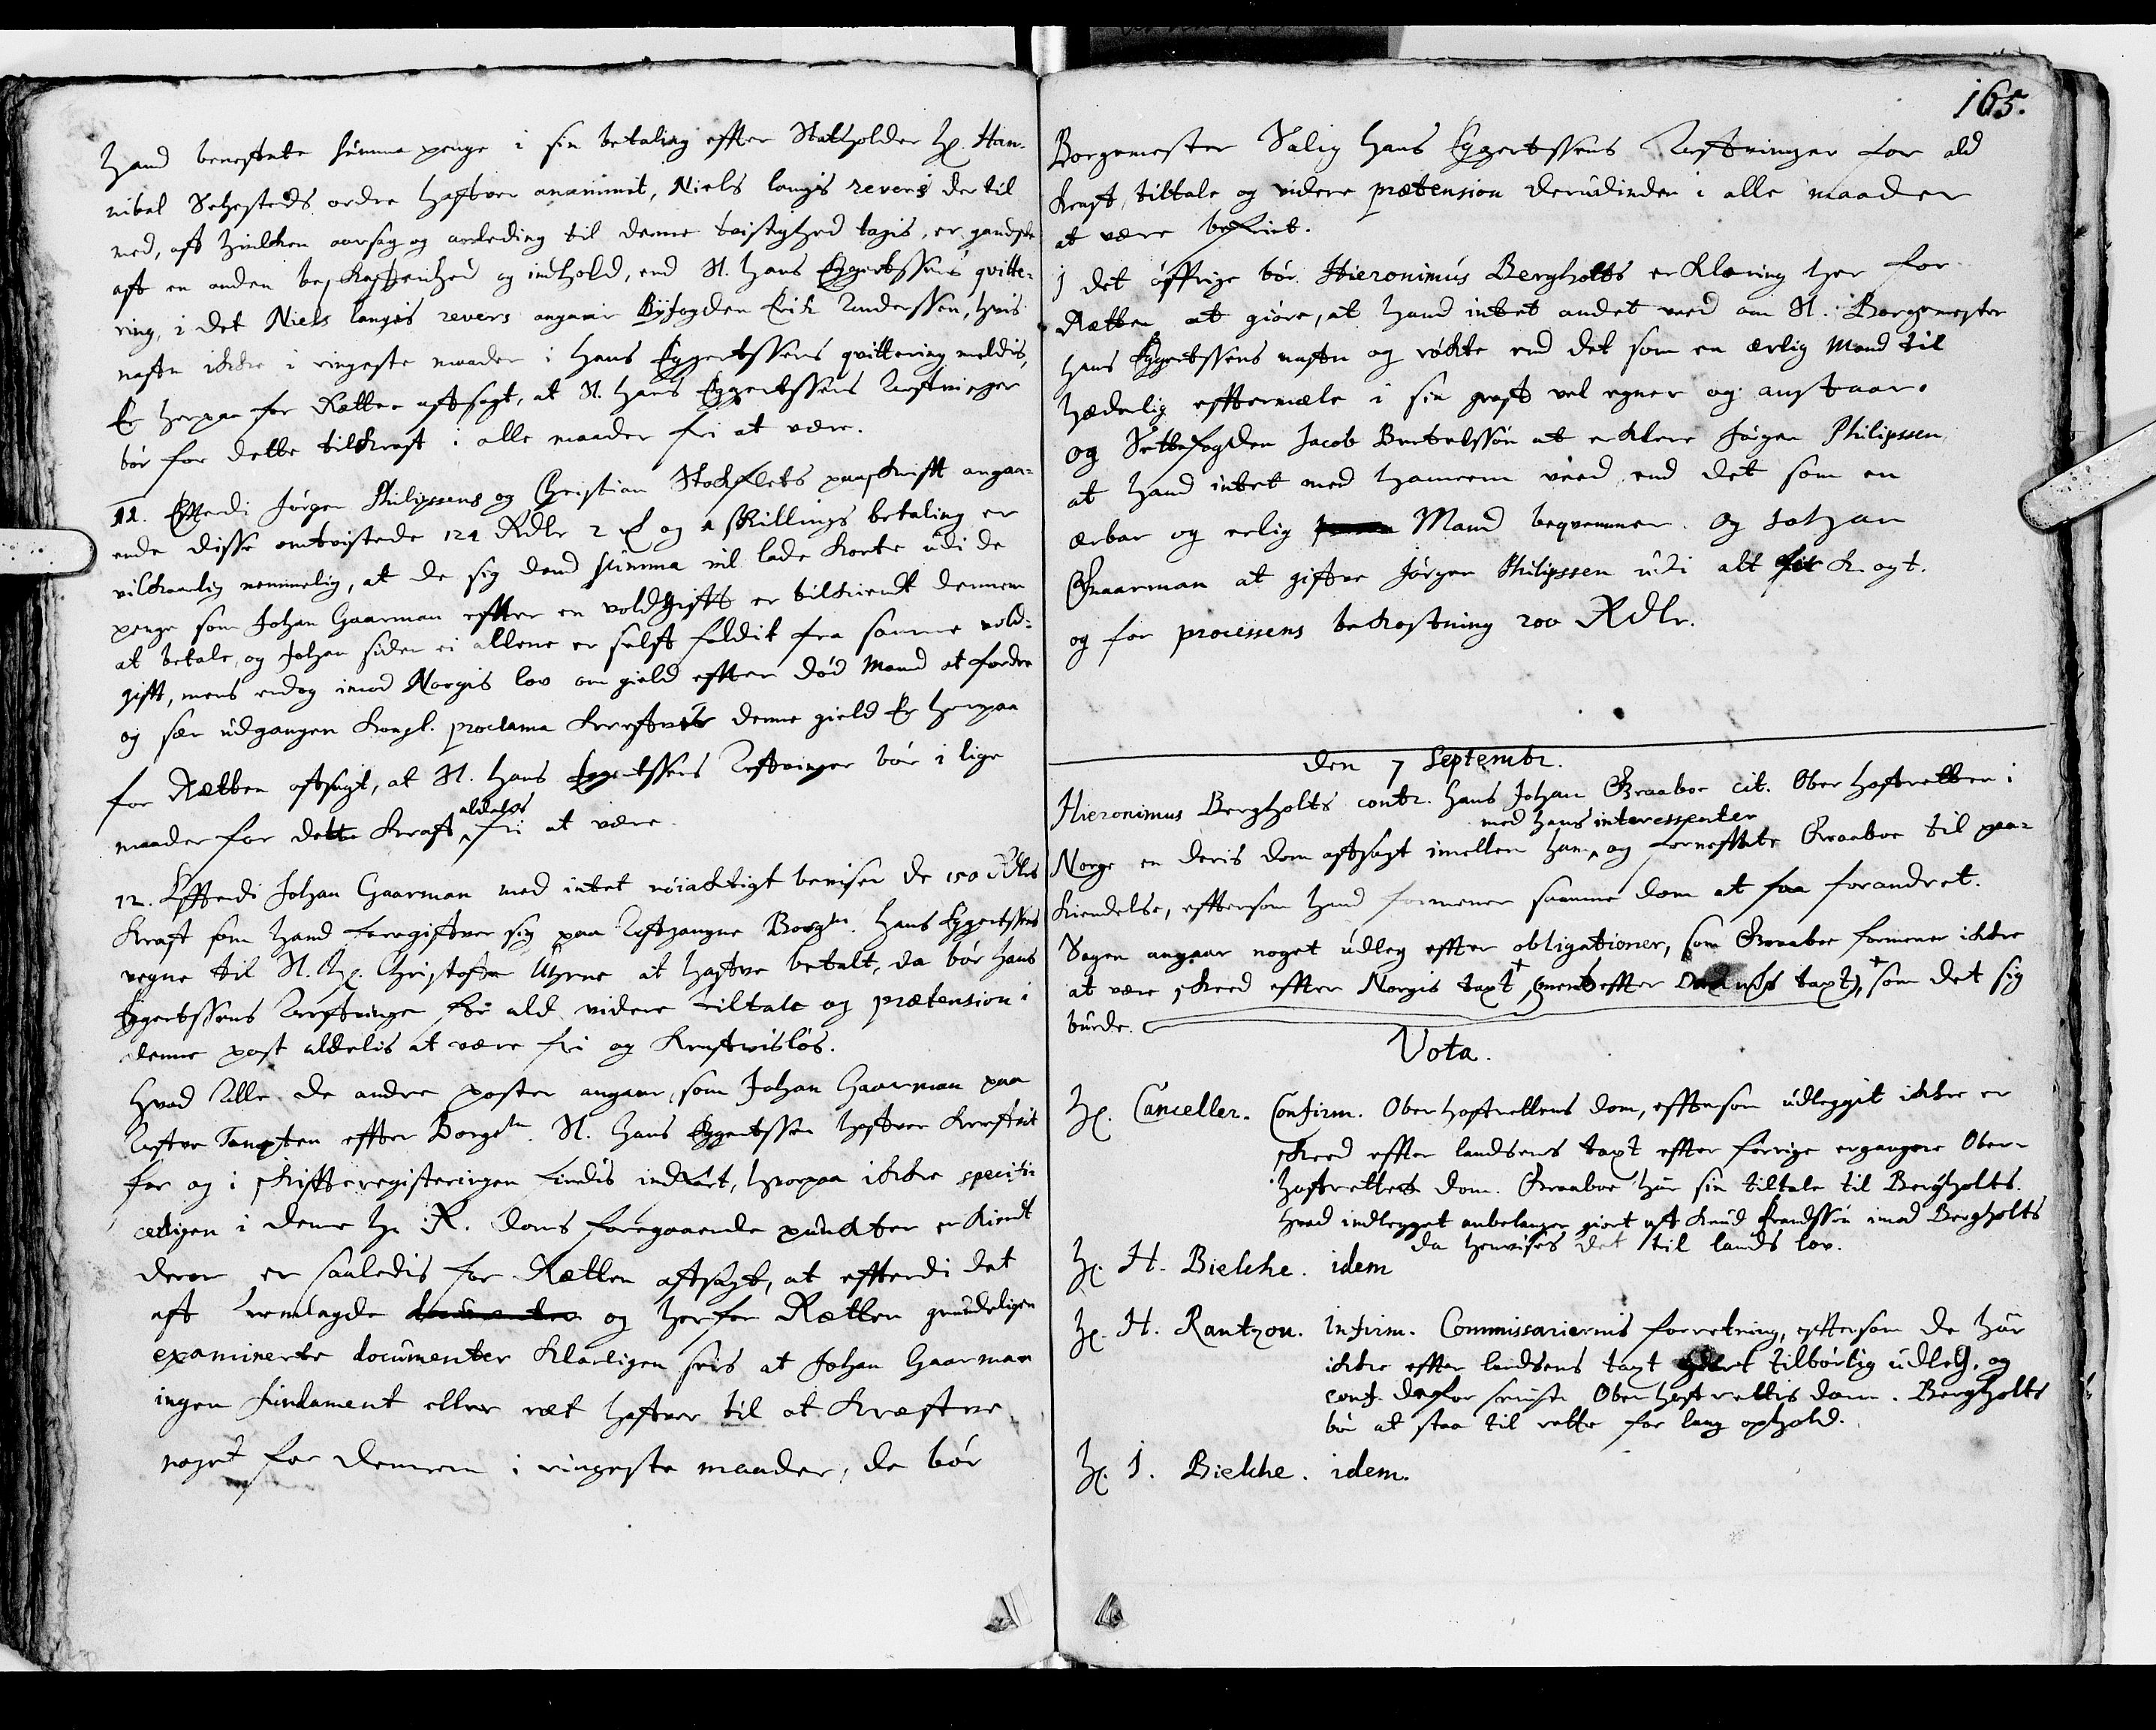 hand benefnte summa penge i sin betaling effter Statholder H. Han-
nibal Sehesteds ordre hafver anammit, Niels langis revers der til
med, aff hvilken aarsag og anleding til denne tvistighed tagis, er gandske
aff en anden beskaffenhed og indhold, end Sl. Hans Eggertssens qvitte-
ring, i det Niels langis revers angaar Byfogden Erik Anderssen, hvis
nafn ikke i ringeste maader i Hans Eggertssens qvittering meldis,
Er herpaa for Rætten affsagt, at Sl. Hans Eggertssens Arfvinger
bør for dette tilkraf i alle maader fri at være.
11. Efterdi Jørgen Philipssens og Christian Stockflets paaskrifft angaa-
ende disse omtvistede 124 Rdlr 2 og 4 skillings betaling er
vilkaarlig nemmelig, at de sig dend summa vil lade korte udi de
penge som Johan Gaarman effter en voldgifts er tilkiendt dennem
at betale, og Johan siden ei allene er self faldit fra samme vold-
gifft, mens endog imod Norgis lov om gield effter død Mand at fordre
og før udgangen Kongl. proclama krefvit denne gield Er herpaa
for Rætten affsagt, at Sl. Hans Eggertssens Arfvinger bør i lige
maader for dette kraf aldelis fri at være.
12. Efterdi Johan Gaarman med intet nøiaktigt beviser de 150 Rdlrs
kraf som hand foregifver sig paa Afgangne Borgm. Hans Eggertssens
vegne til Sl. H. Christoffer Uhrne at hafve betalt, da bør Hans
Eggertssens Arfvinge for ald videre tiltale og prætension i
denne post aldelis at være fri og krafvisløs.
Hvad Alle de andre poster angaar, som Johan Gaarman paa
Arfve Tompten effter Borgm. Sl. Hans Eggertssen hafver krefvit
for og i skiffteregisteringen findis indført, hvorpaa ikke specifi-
cerligen i denne H. R. doms foregaaende puncter er kiendt
derom er saaledis for Rætten affsagt, at efterdi det
aff fremlagde og her for Rætten grundeligen
examinerte documenter klarligen sees at Johan Gaarman
ingen fundament eller ræt hafver til at kræfve
noget for dennem i ringeste maader, da bør
165.
Borgemester Salig Hans Eggertssens Arfvinger for ald
kraf, tiltale og videre prætension derudinden i alle maader
at være befriet.
I det øffrige bør Hieronimus Bergholts erklæring her for
Rætten at giøre, at hand intet andet veed om Sl. Borgemester
Hans Eggertssens nafn og røkte end det som en ærlig Mand til
hæderlig effterméle i sin graf vel egner og anstaar.
og Settefogden Jacob Bertelssøn at erklere Jørgen Philipssen
at hand intet med hannem veed, end det som en
ærbar og erlig Mand beqvemmer. Og Johan
Gaarman at gifve Jørgen Philipssen udi alt
og for processens bekostning 200 Rdlr.
den 7 Septembr.
Hieronimus Bergholts contr. Hans Johan Graaboe cit. Ober Hofretten i
Norge en deris dom affsagt imellem ham med hans interessenter og bemeldte Graaboe til paa-
kiendelse, effterson hand formener samme dom at faa forandret.
Sagen angaar noget udleg effter obligationer, som Graaboe formener ikke
at være skeed effter Norgis taxt, (ment effter taxt), som det sig
burde.
Vota.
H. Canceller. Confirm. Ober hofrettens dom, effterson udleggit ikke er
skeed effter landsens taxt effter forrige ergangne Ober-
hofrettes dom. Graaboe har sin tiltale til Bergholts.
Hvad indlegget anbelanger giort aff Knud Frandssøn imod Bergholts
da henvises det til lands lov.
H. H. Bielche. idem
H. H. Rantzou. Infirm. Commissariernis forretning, effterson de har
ikke effter landsens taxt giort tilbørlig udleg, og
conf. derfor seniste Ober hofrettis dom. Bergholts
bør at staa til rette for lang ophold.
H. J. Bielche. idem.